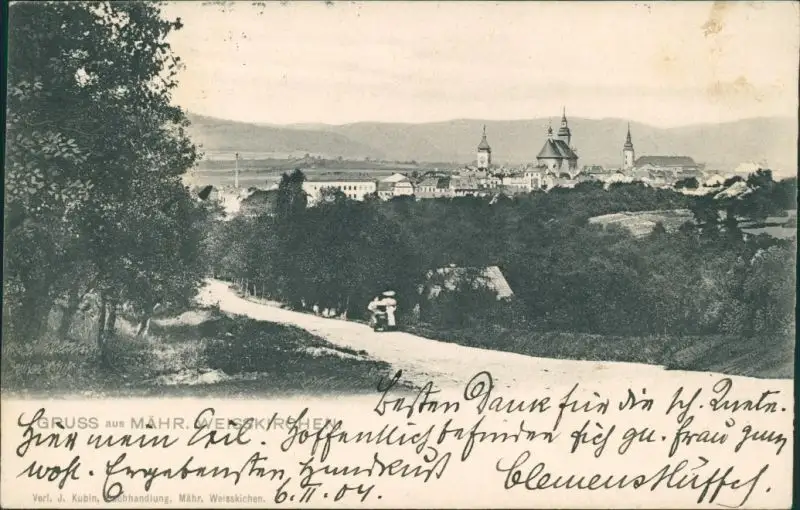 GRUSS aus MÄHR. WEISSKIRCHEN
Besten Dank für die sch. Karte.
Hier mein Exil! Hoffentlich befinden sich gn. Frau ganz
wohl. Ergebensten Handkuß
6.II.04.
Verl. J. Kubin, Buchhandlung, Mähr. Weisskirchen.